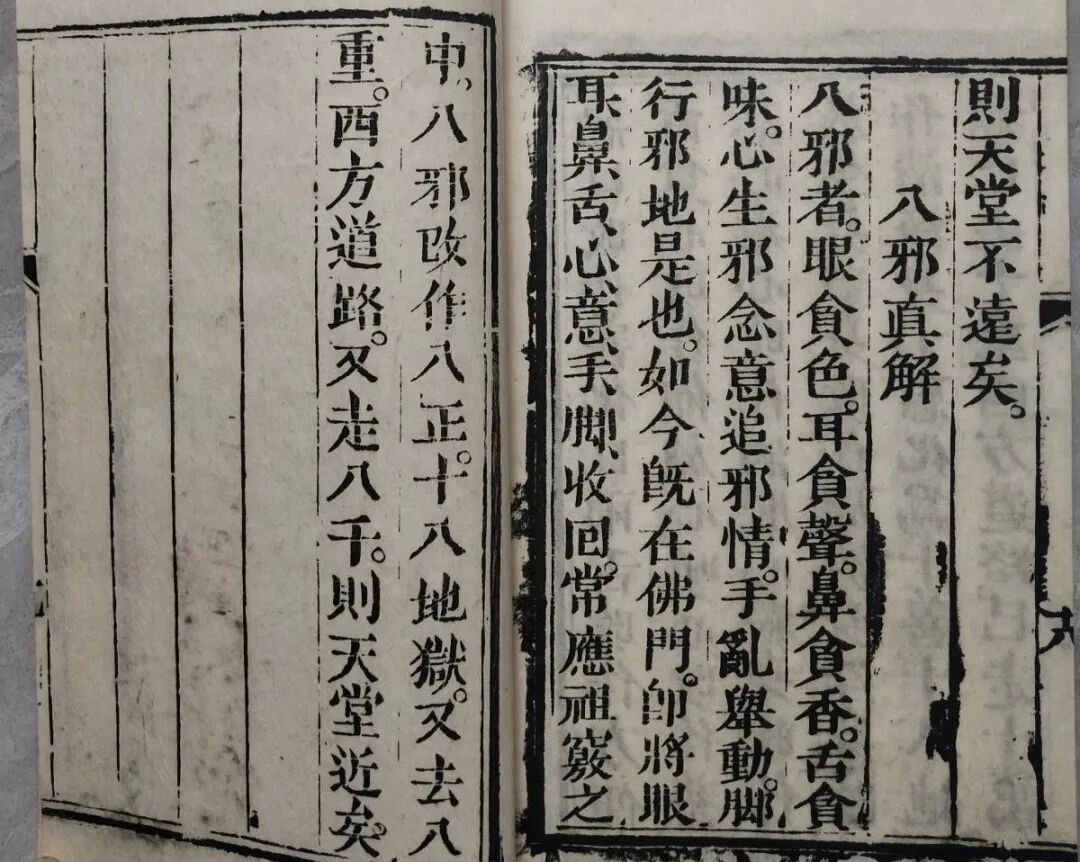 則天堂不遠矣。
八邪真解
八邪者。眼貪色。耳貪聲。鼻貪香。舌貪
味。心生邪念意追邪情。手亂舉動。脚
行邪地是也。如今旣在佛門。卽將眼
耳、鼻舌、心、意、手、脚、收回。常應祖竅之
中。八邪改作八正。十八地獄。又去八
重。西方道路。又走八千。則天堂近矣。
十八